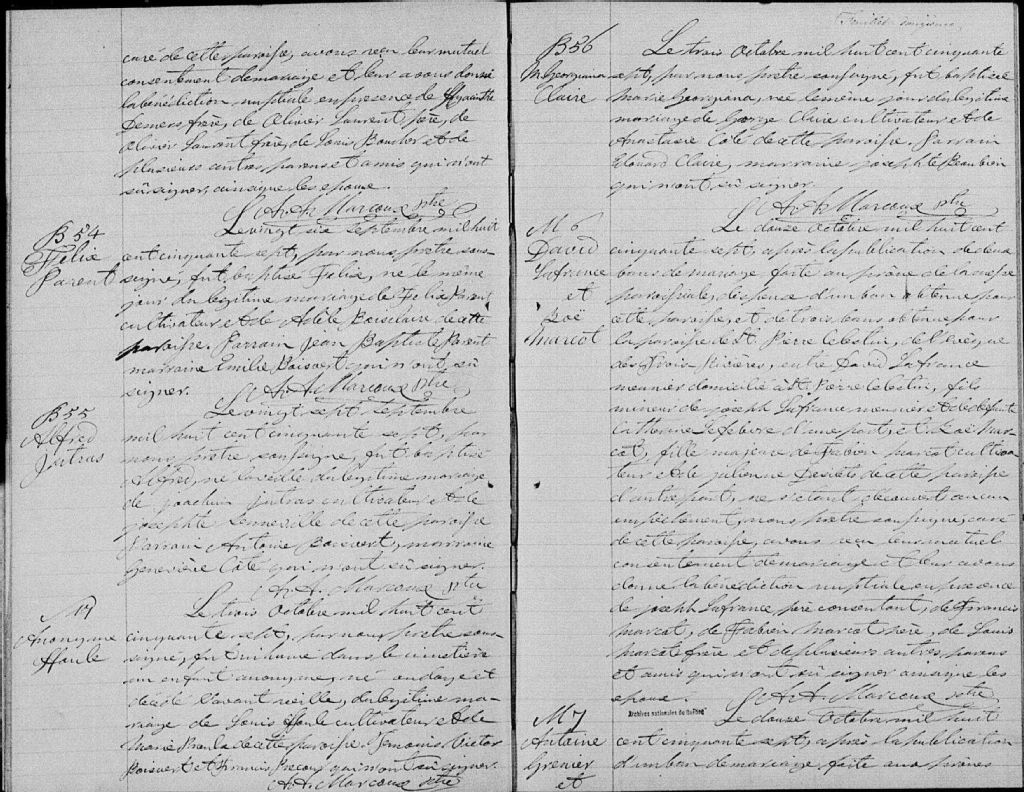 curé de cette paroisse, avons reçu leur mutuel
consentement de mariage et leur avons donné
la bénédiction nuptiale en présence de Hyacinthe
Demers frère, de Olivier Laurent père, de
Olivier Laurent frère, de Louis Boucher et de
plusieurs autres parens et amis qui n'ont
sû signer, ainsi que les epoux.
L. A. A. Marcoux ptre
B 54
Félix
Parent
Le vingt six Septembre mil huit
cent cinquante sept, par nous prêtre sous-
signé, fut baptisé Félix, né le même
jour du légitime mariage de Félix Parent
cultivateur et de Adèle Boisclaire de cette
paroisse. Parrain Jean Baptiste Parent
marraine Emilie Boisvert qui n'ont sû
signer.
L. A. A. Marcoux ptre
B 55
Alfred
Jutras
Le vingt sept septembre
mil huit cent cinquante sept, par
nous prêtre soussigné, fut baptisé
Alfred, né la veille du légitime mariage
de joachim jutras cultivateur et de
josephte Lenneville de cette paroisse
Parrain Antoine Boisvert, marraine
Geneviève Côté qui n'ont sû signer.
A. A. Marcoux ptre
Anonyme
Le trois Octobre mil huit cent
cinquante sept, par nous prêtre sous-
signé, fut inhumé dans le cimetière
un enfant anonyme, né ondoyé et
décédé l'avant veille, du légitime ma-
riage de Louis cultivateur et de
Marie de cette paroisse. Temoins Victor
Boisvert et Francis qui n'ont sû signer.
A. A. Marcoux ptre
B 56
M. Georgiana
Claire
Le trois Octobre mil huit cent cinquante
sept, par nous prêtre soussigné, fut baptisée
Marie Georgiana, née le même jour du légitime
mariage de George Claire cultivateur et de
Anastasie Côté de cette paroisse. Parrain
Edouard Claire, marraine josephte Beaubien
qui n'ont sû signer.
L. A. A. Marcoux ptre
M 6
David
Lafrance
et
Zoë
Marcot
Le douze Octobre mil huit cent
cinquante sept, après la publication de deux
bans de mariage faite au prône de la messe
paroissiale, dispense d'un ban obtenue pour
cette paroisse et de trois bans obtenue pour
la paroisse de St. Pierre Célestin, de l'évêque
des Trois Rivières, entre David Lafrance
meunier domicilié à St. Pierre Célestin, fils
mineur de joseph Lafrance meunier et de défunte
Catherine Lefebvre d'une part, et Zoë Mar-
cot, fille majeure de Fabien Marcot cultiva-
teur et de julienne de cette paroisse
d'autre part, ne s'étant découvert aucun
empêchement, nous prêtre soussigné, curé
de cette paroisse, avons reçu leur mutuel
consentement de mariage et leur avons
donné la bénédiction nuptiale en présence
de joseph Lafrance père consentant, de Francis
Marcot, de Fabien Marcot père, de Louis
Marcot frère et de plusieurs autres parens
et amis qui n'ont sû signer ainsi que les
epoux.
L. A. A. Marcoux ptre
Archives nationales du Québec
M 7
Antoine
Grenier
et
Le douze Octobre mil huit
cent cinquante sept, après la publication
d'un ban de mariage, faite aux prônes